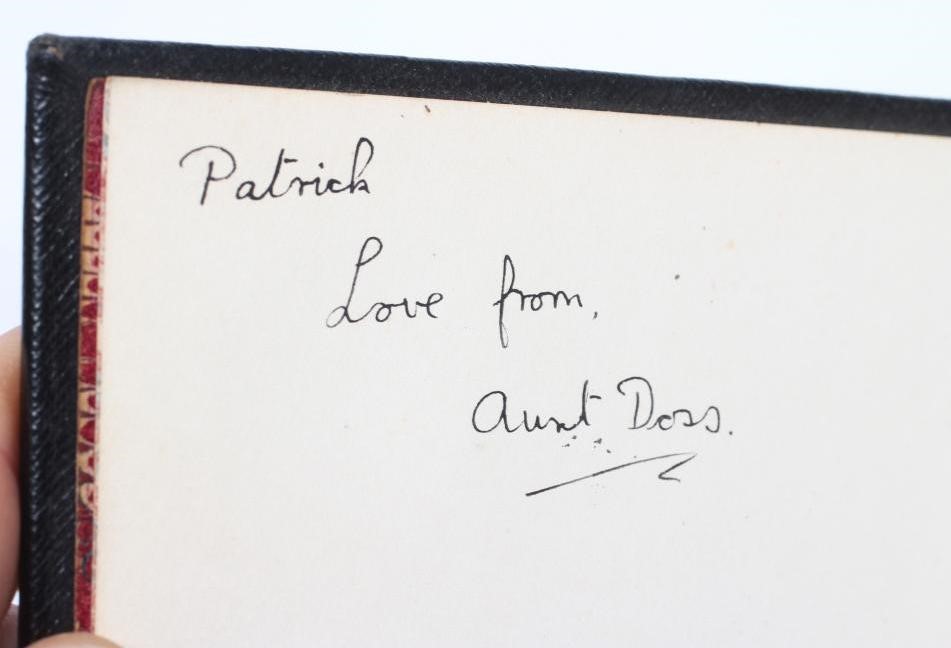 Patrick
Love from,
Aunt Doss.